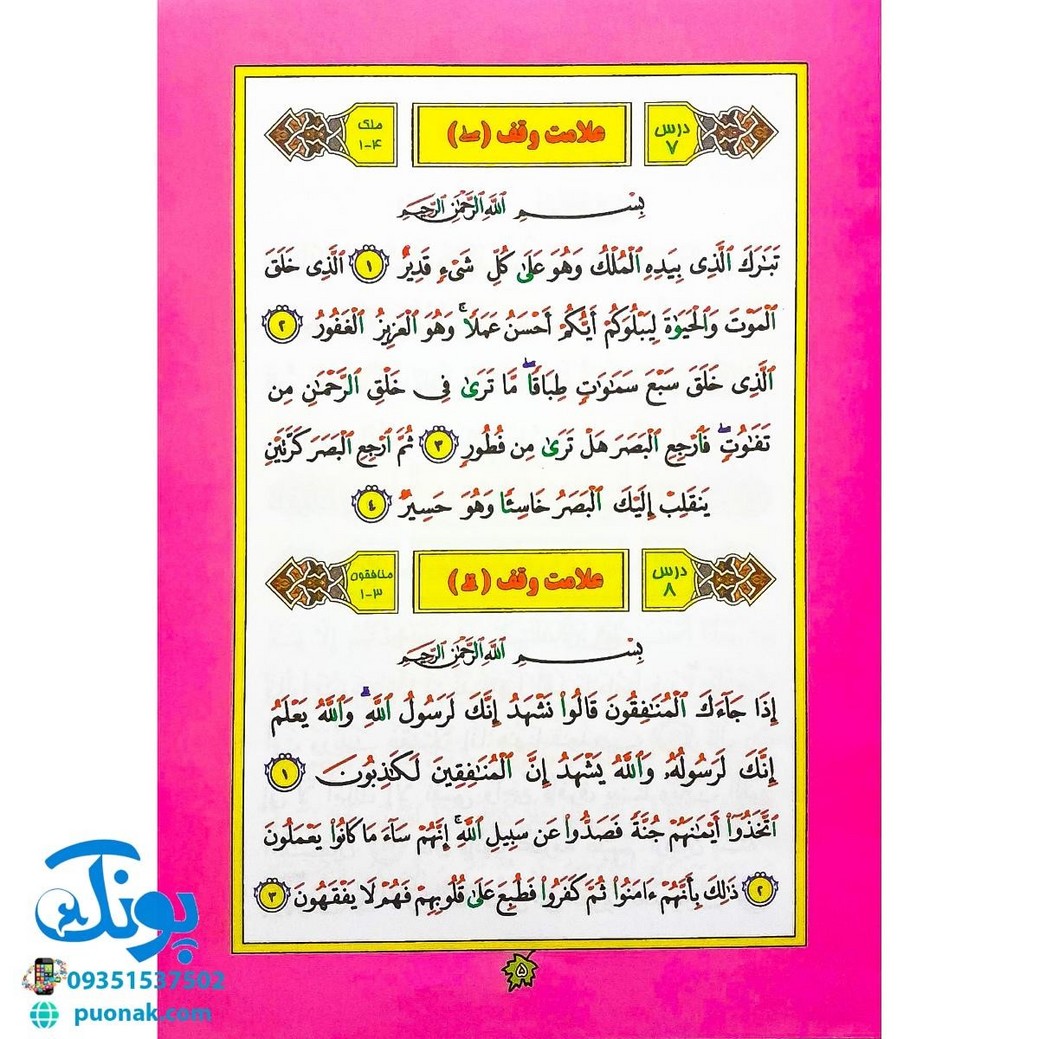 درس ۷
علامت وقف (صلے)
ملک ۴-۱
بِسْمِ اللَّهِ الرَّحْمَٰنِ الرَّحِيمِ
تَبَٰرَكَ ٱلَّذِى بِيَدِهِ ٱلْمُلْكُ وَهُوَ عَلَىٰ كُلِّ شَىْءٍ قَدِيرٌ ١ ٱلَّذِى خَلَقَ
ٱلْمَوْتَ وَٱلْحَيَوٰةَ لِيَبْلُوَكُمْ أَيُّكُمْ أَحْسَنُ عَمَلًا ۚ وَهُوَ ٱلْعَزِيزُ ٱلْغَفُورُ ٢
ٱلَّذِى خَلَقَ سَبْعَ سَمَٰوَٰتٍ طِبَاقًا ۖ مَّا تَرَىٰ فِى خَلْقِ ٱلرَّحْمَٰنِ مِن
تَفَٰوُتٍ ۖ فَٱرْجِعِ ٱلْبَصَرَ هَلْ تَرَىٰ مِن فُطُورٍ ٣ ثُمَّ ٱرْجِعِ ٱلْبَصَرَ كَرَّتَيْنِ
يَنقَلِبْ إِلَيْكَ ٱلْبَصَرُ خَاسِئًا وَهُوَ حَسِيرٌ ٤
درس ۸
علامت وقف (قلے)
منافقون ۳-۱
بِسْمِ اللَّهِ الرَّحْمَٰنِ الرَّحِيمِ
إِذَا جَآءَكَ ٱلْمُنَٰفِقُونَ قَالُوا۟ نَشْهَدُ إِنَّكَ لَرَسُولُ ٱللَّهِ ۗ وَٱللَّهُ يَعْلَمُ
إِنَّكَ لَرَسُولُهُۥ وَٱللَّهُ يَشْهَدُ إِنَّ ٱلْمُنَٰفِقِينَ لَكَٰذِبُونَ ١
ٱتَّخَذُوٓا۟ أَيْمَٰنَهُمْ جُنَّةً فَصَدُّوا۟ عَن سَبِيلِ ٱللَّهِ ۚ إِنَّهُمْ سَآءَ مَا كَانُوا۟ يَعْمَلُونَ
٢ ذَٰلِكَ بِأَنَّهُمْ ءَامَنُوا۟ ثُمَّ كَفَرُوا۟ فَطُبِعَ عَلَىٰ قُلُوبِهِمْ فَهُمْ لَا يَفْقَهُونَ ٣
۵
پونک
09351537502
puonak.com